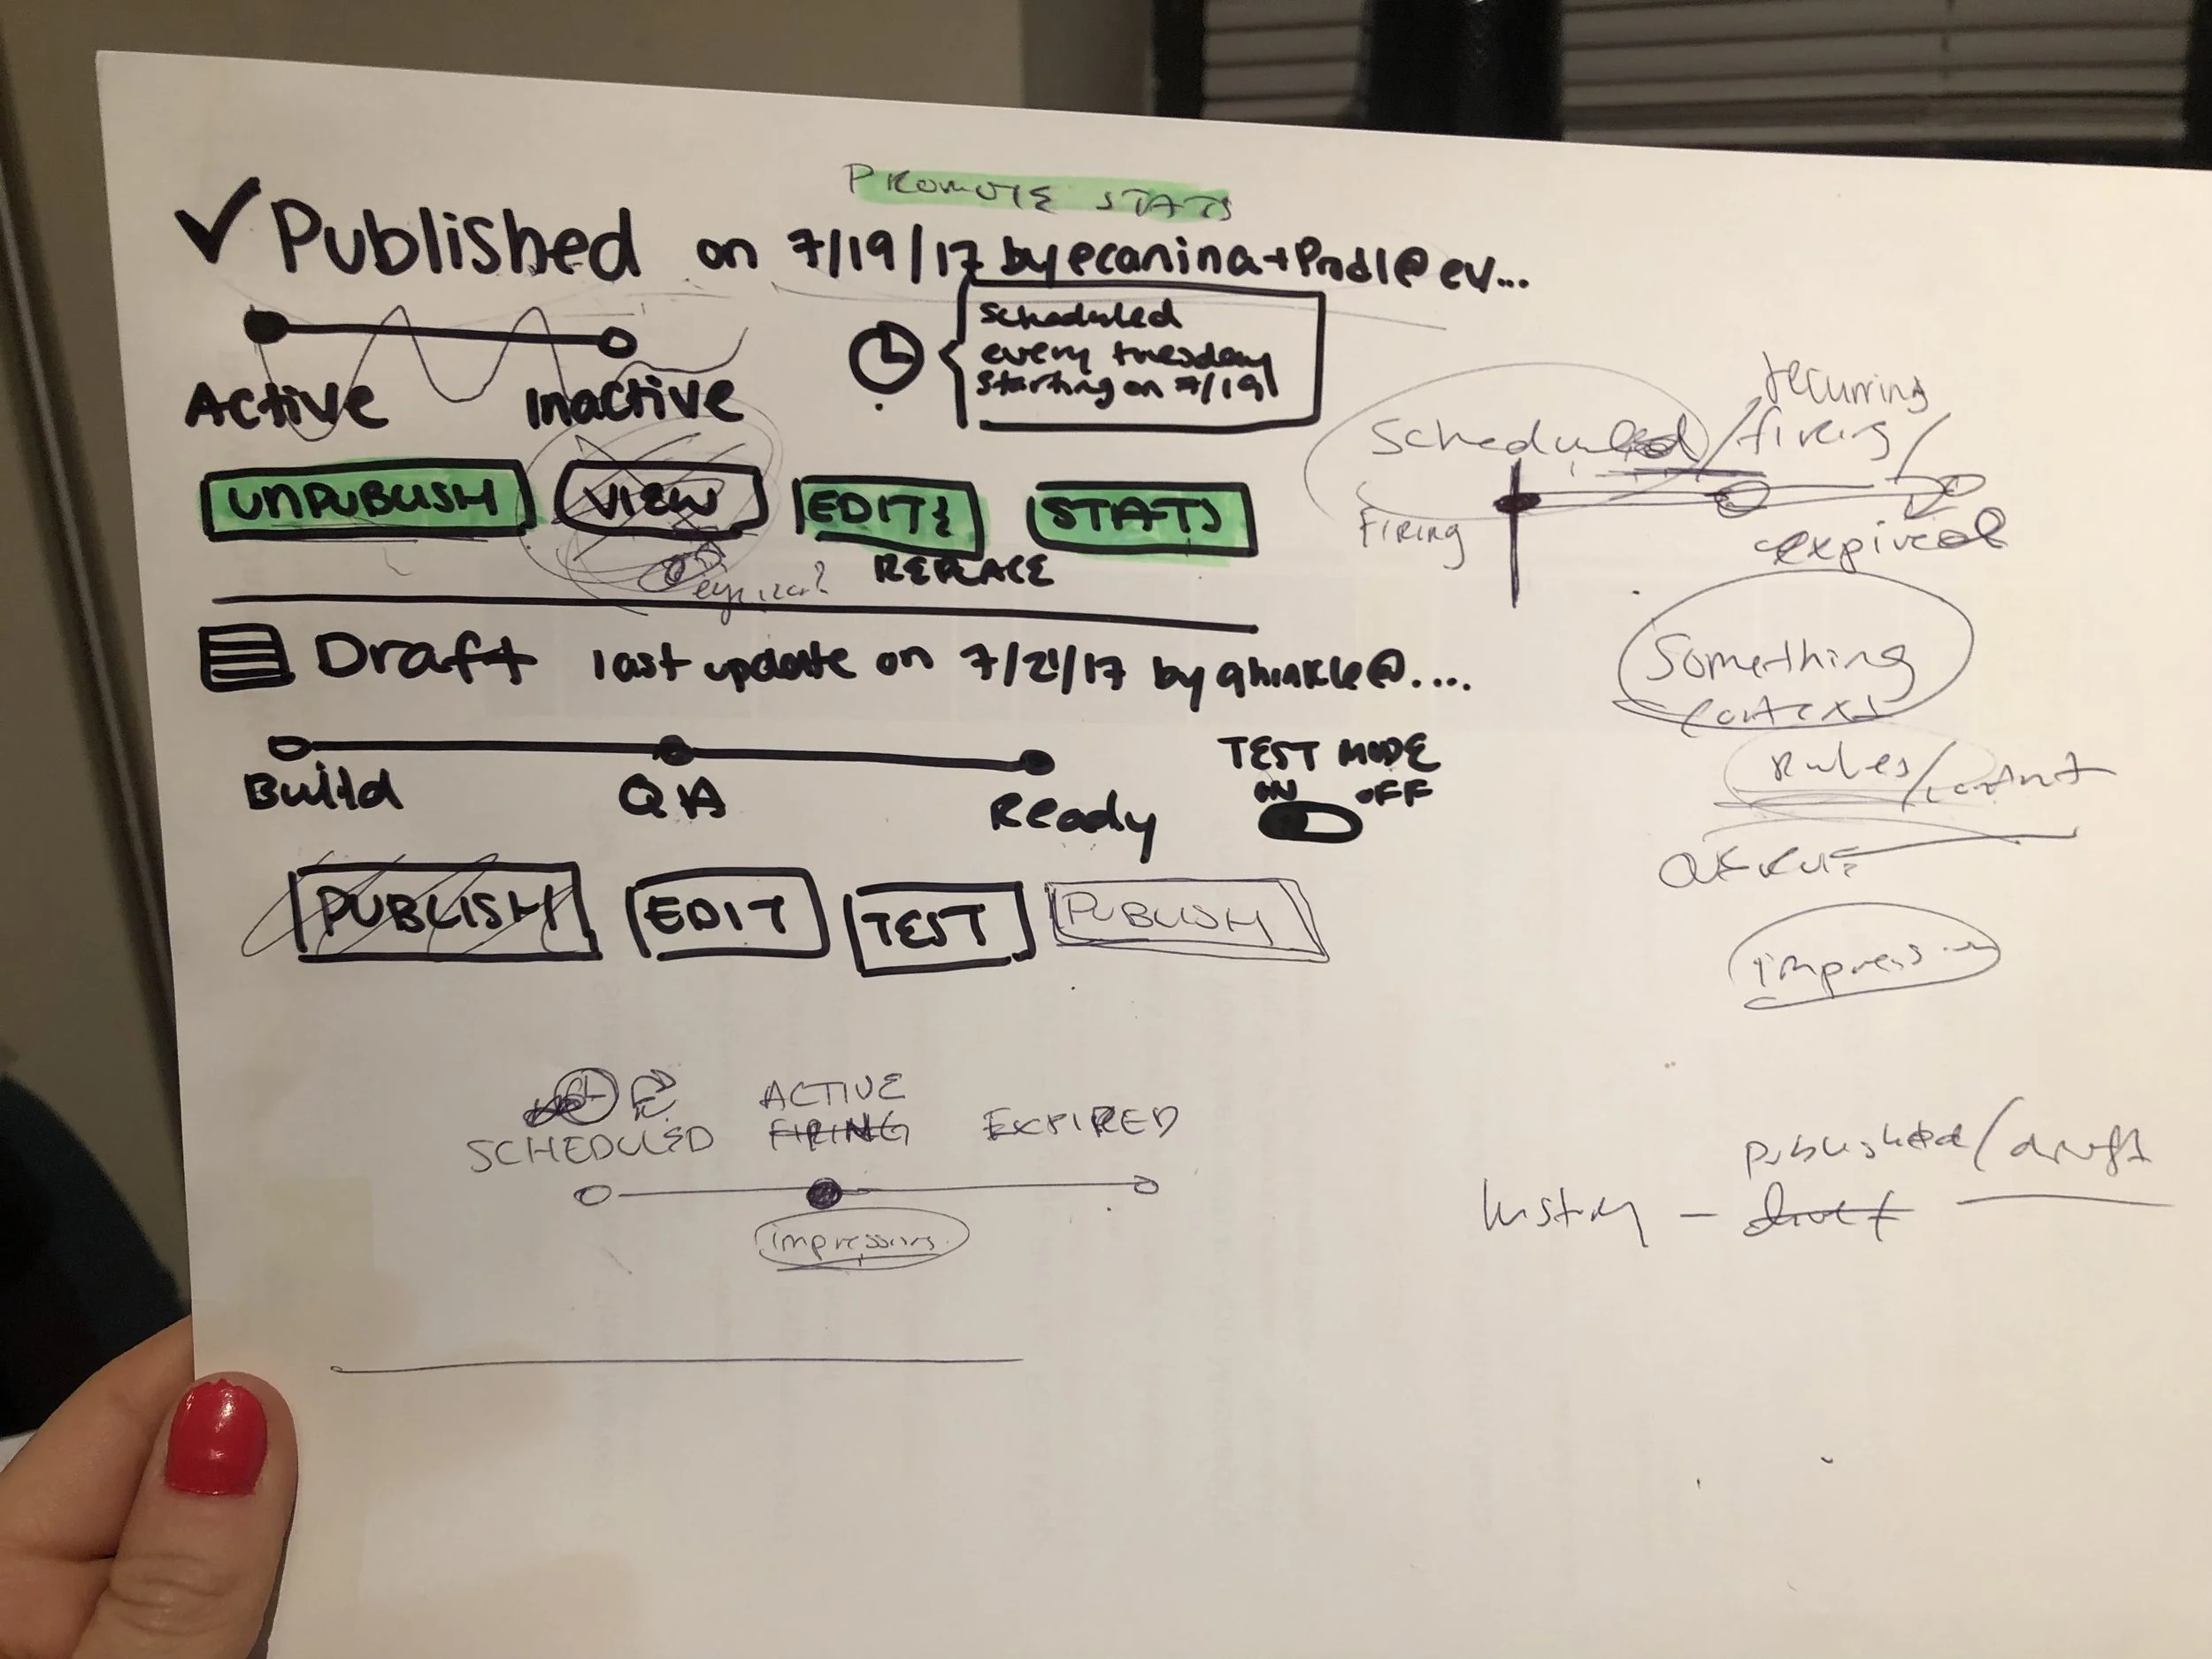 PROMOTE STATS
✓ Published on 7/19/17 by ecanina+Prod1@ev...
scheduled
every tuesday
starting on 7/19
Active Inactive
UNPUBLISH VIEW EDIT STATS
REPLACE
Scheduled / recurring
firing /
FIRING
expired
Draft last update on 7/21/17 by ghinkle@....
Something
Build QA Ready
TEST MODE
ON OFF
Rules /
PUBLISH EDIT TEST PUBLISH
SCHEDULED ACTIVE FIRING EXPIRED
impressions
published / draft
history — draft